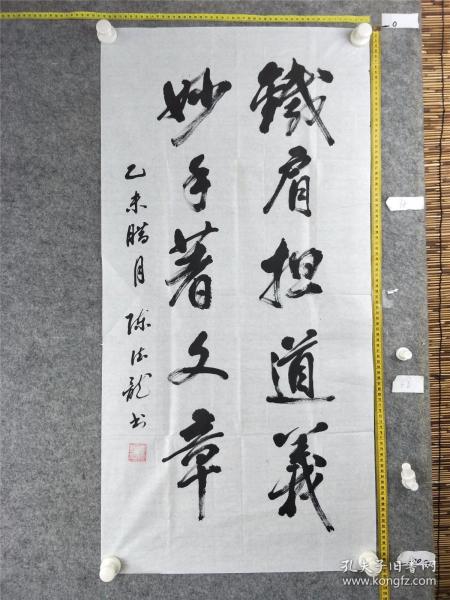 鐵肩担道義
妙手著文章
乙未腊月 陈法龙书
孔夫子旧书网
www.kongfz.com